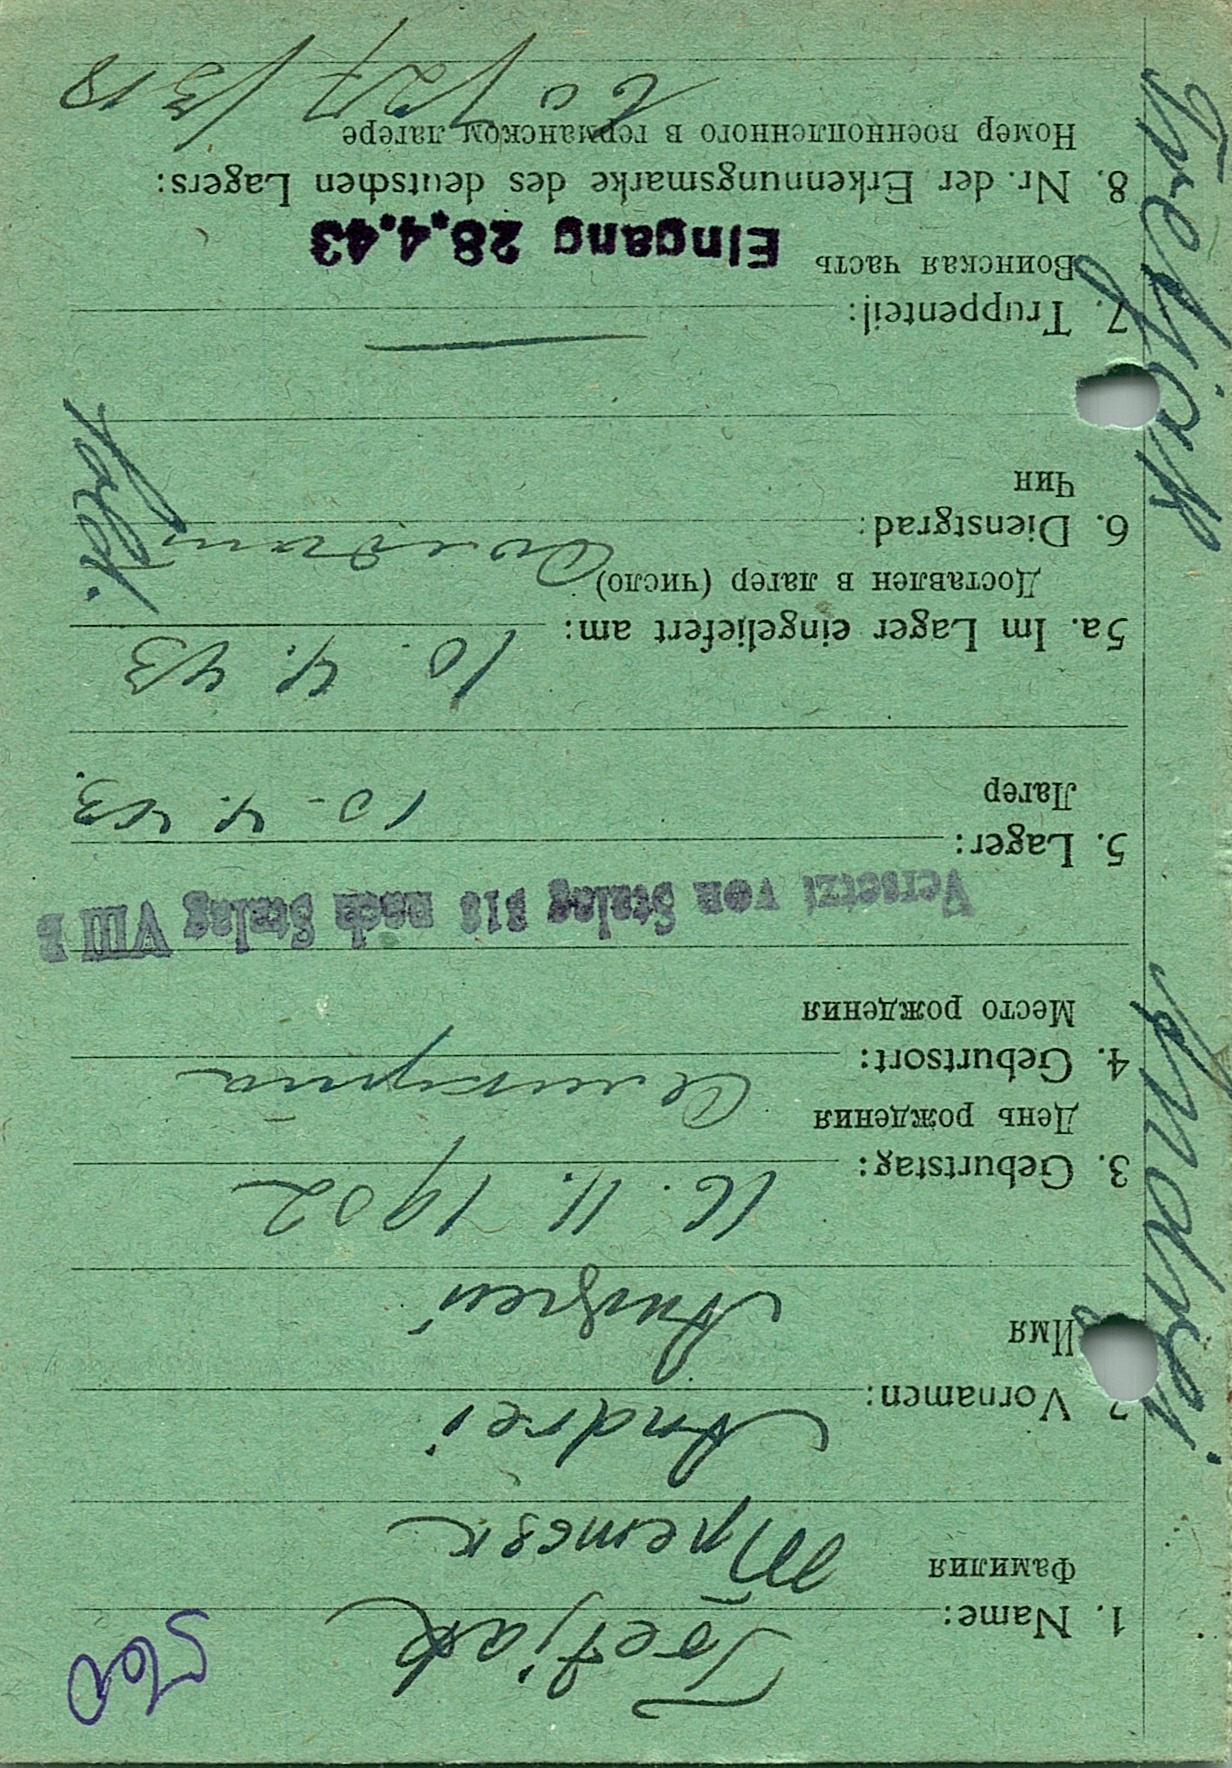 1. Name: Tretjak
Фамилия Третяк
Vornamen: Andrei
Имя Андрей
3. Geburtstag: 16. 11. 1902
День рождения
4. Geburtsort:
Место рождения
Versetzt von Stalag 318 nach Stalag VIII B
5. Lager: 10. 4. 43.
Лагер
5a. Im Lager eingeliefert am: 10. 4. 43
Доставлен в лагер (число)
6. Dienstgrad: Soldat
Чин
7. Truppenteil:
Воинская часть
Eingang 28.4.43
8. Nr. der Erkennungsmarke des deutschen Lagers:
Номер военнопленного в германском лагере
/318
Tretjak
Andrei